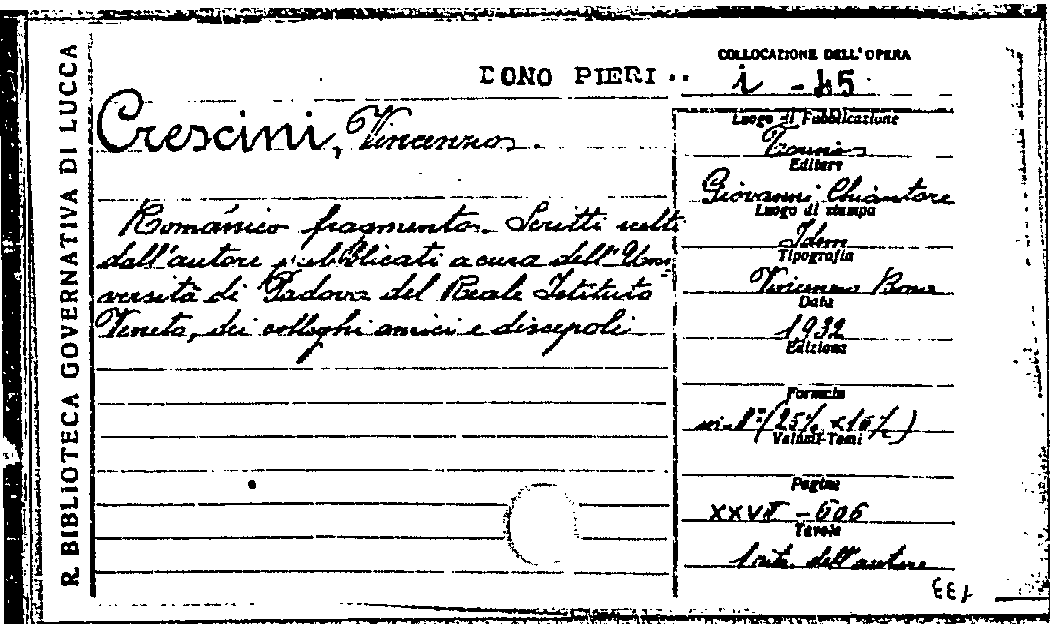 R. BIBLIOTECA GOVERNATIVA DI LUCCA
DONO PIERI..
COLLOCAZIONE DELL'OPERA
i - 45
Crescini, Vincenzo.
Románico fragmenta. Scritti scelti
dall'autore pubblicati a cura dell'Uni
versità di Padova del Reale Istituto
Veneto, dei colleghi amici e discepoli
Luogo di Pubblicazione
Torino
Editore
Giovanni Chiantore
Luogo di stampa
Idem
Tipografia
Vincenzo Bona
Data
1932
Edizione
Formato
in-8° (25½ × 16½)
Volumi-Tomi
Pagine
XXVII - 606
Tavole
1 ritr. dell'autore